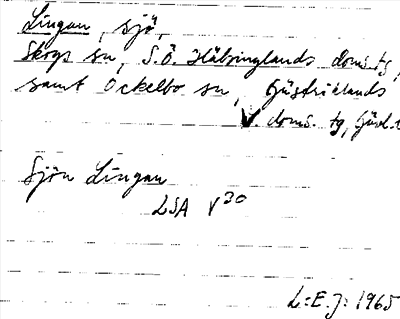 Lingan, sjö,
Skogs sn, S.Ö. Hälsinglands doms. tg,
samt Ockelbo sn, Gästriklands
V. doms. tg, Gävl. l
Sjön Lingan
LSA V 30
L:E.J: 1965